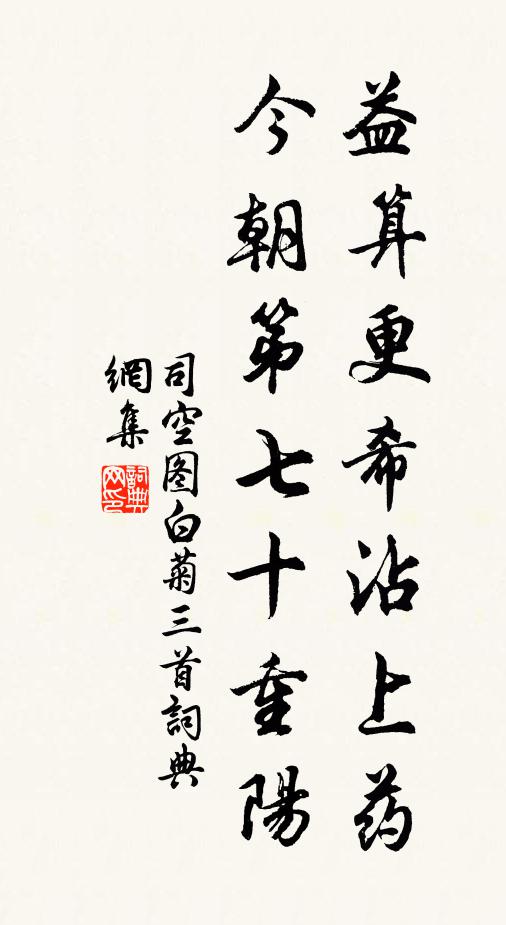 益算更希沾上药
今朝第七十重陽
司空图白菊三首詞典
網集
詞典网印